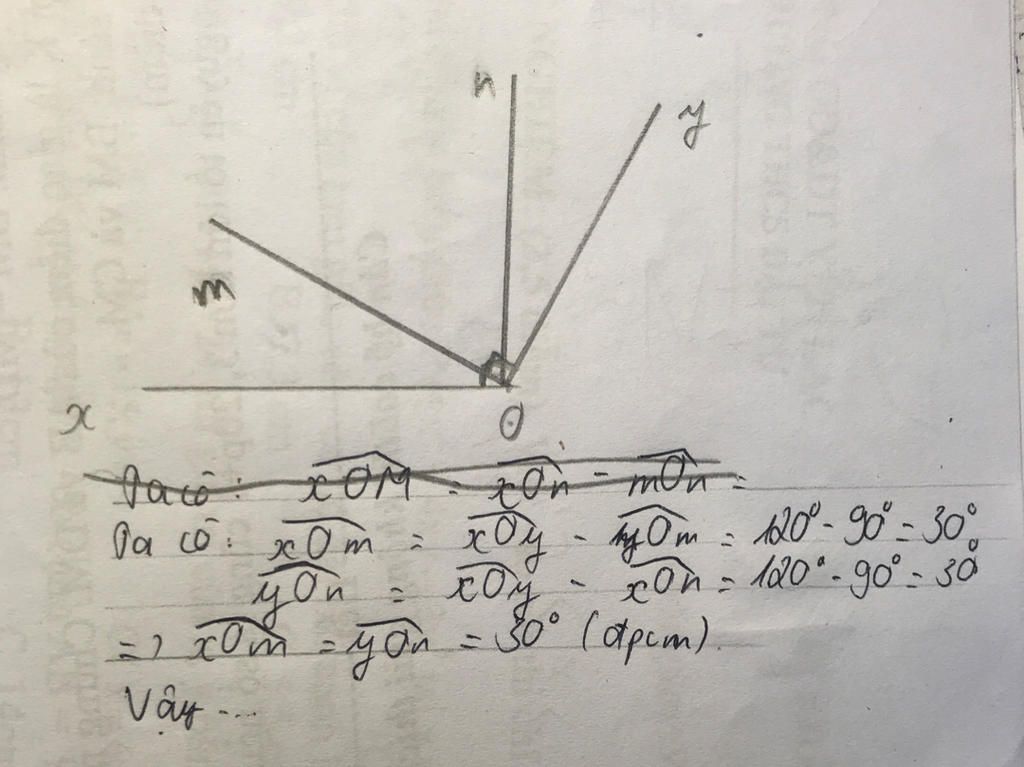 n
y
m
x
O
Ta có: xOM = xOn - mOn =
Ta có: xOm = xOy - yOm = 120° - 90° = 30°
yOn = xOy - xOn = 120° - 90° = 30°
=> xOm = yOn = 30° (đpcm).
Vậy ...